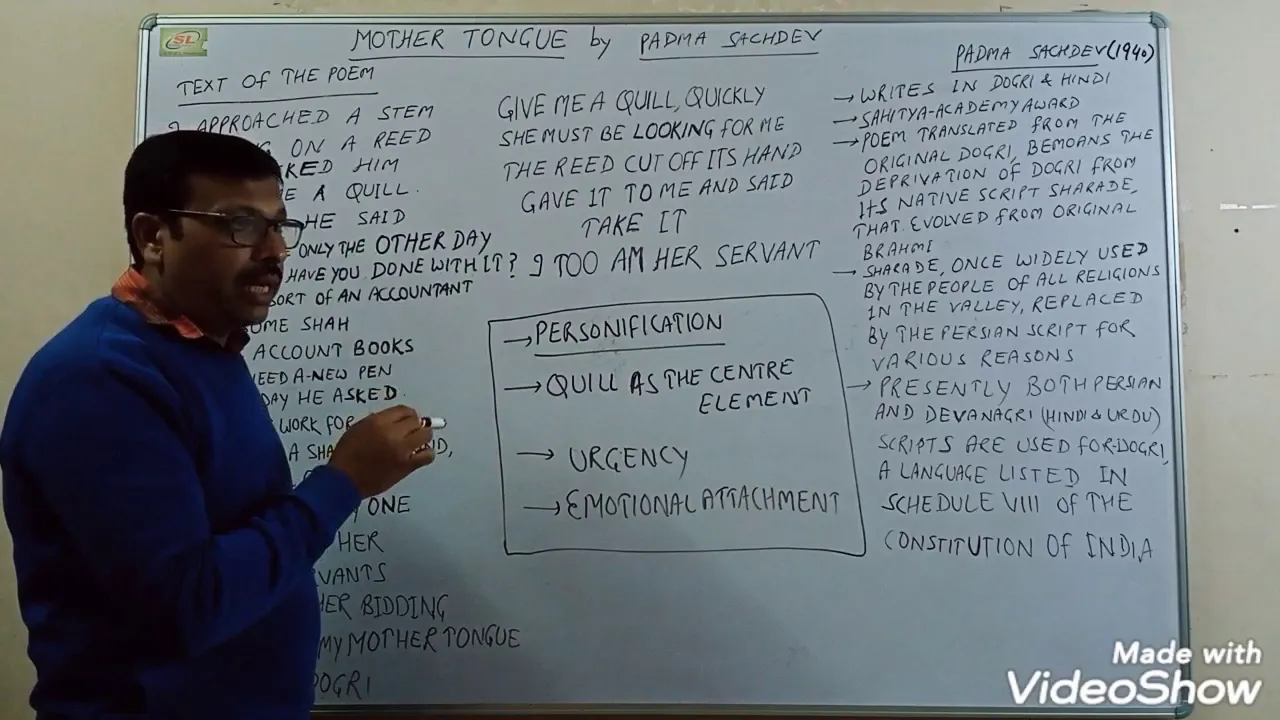 SL
MOTHER TONGUE by PADMA SACHDEV
TEXT OF THE POEM
I APPROACHED A STEM
ON A REED
HIM
A QUILL.
HE SAID
ONLY THE OTHER DAY
HAVE YOU DONE WITH IT?
SORT OF AN ACCOUNTANT
SHAH
ACCOUNT BOOKS
NEED A NEW PEN
DAY HE ASKED.
WORK FOR
A
ONE
HER
HER BIDDING
MY MOTHER TONGUE
DOGRI
GIVE ME A QUILL, QUICKLY
SHE MUST BE LOOKING FOR ME
THE REED CUT OFF ITS HAND
GAVE IT TO ME AND SAID
TAKE IT
I TOO AM HER SERVANT
→ PERSONIFICATION
→ QUILL AS THE CENTRE
ELEMENT
→ URGENCY
→ EMOTIONAL ATTACHMENT
PADMA SACHDEV (1940)
→ WRITES IN DOGRI & HINDI
→ SAHITYA-ACADEMY AWARD
→ POEM TRANSLATED FROM THE
ORIGINAL DOGRI, BEMOANS THE
DEPRIVATION OF DOGRI FROM
ITS NATIVE SCRIPT SHARADE,
THAT EVOLVED FROM ORIGINAL
BRAHMI
→ SHARADE, ONCE WIDELY USED
BY THE PEOPLE OF ALL RELIGIONS
IN THE VALLEY, REPLACED
BY THE PERSIAN SCRIPT FOR
VARIOUS REASONS
→ PRESENTLY BOTH PERSIAN
AND DEVANAGRI (HINDI & URDU)
SCRIPTS ARE USED FOR DOGRI,
A LANGUAGE LISTED IN
SCHEDULE VIII OF THE
CONSTITUTION OF INDIA
Made with
VideoShow